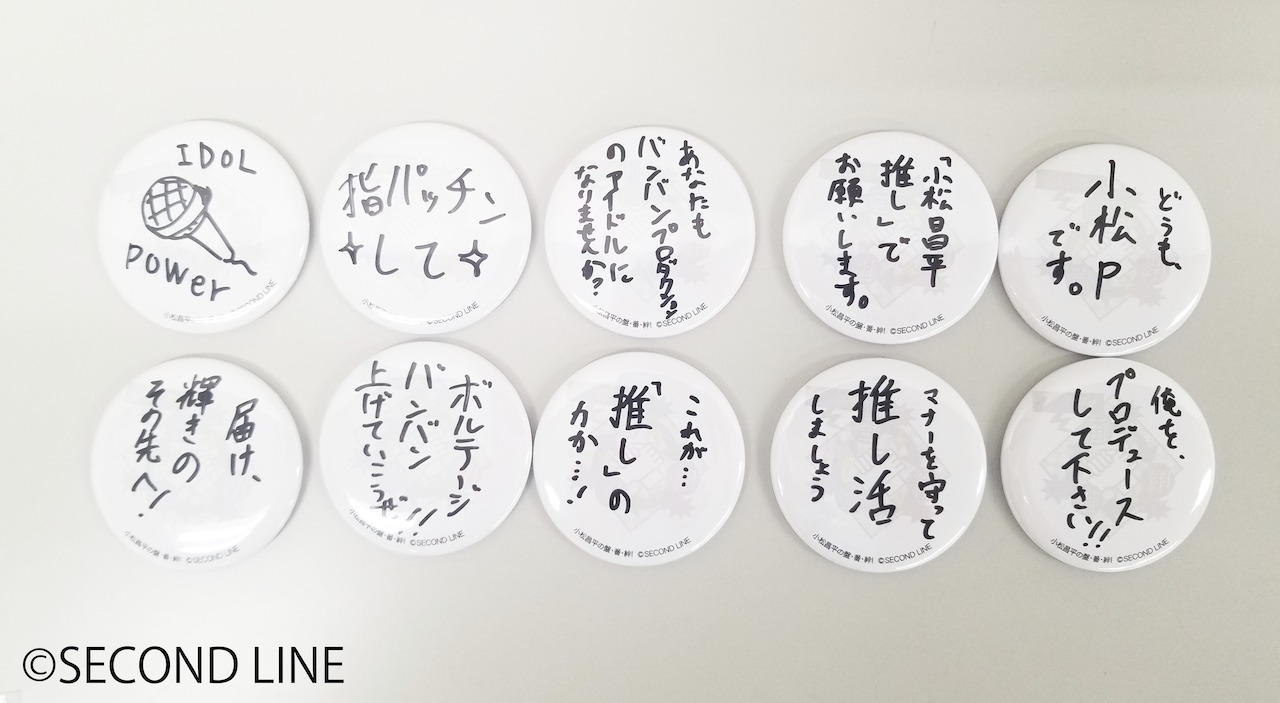 IDOL
POWer
小松昌平の盤・番・絆! ©SECOND LINE
指パッチン
して
小松昌平の盤・番・絆! ©SECOND LINE
あなたも
バンバンプロダクション
のアイドルに
なりませんか?
小松昌平の盤・番・絆! ©SECOND LINE
「小松昌平
推し」で
お願いします。
小松昌平の盤・番・絆! ©SECOND LINE
どうも、
小松P
です。
小松昌平の盤・番・絆! ©SECOND LINE
届け、
輝きの
その先へ!
小松昌平の盤・番・絆! ©SECOND LINE
ボルテージ
バンバン
上げていこうぜ!!
小松昌平の盤・番・絆! ©SECOND LINE
これが…
「推し」の
力か…!
小松昌平の盤・番・絆! ©SECOND LINE
マナーを守って
推し活
しましょう
小松昌平の盤・番・絆! ©SECOND LINE
俺を、
プロデュース
して下さい!!
小松昌平の盤・番・絆! ©SECOND LINE
©SECOND LINE